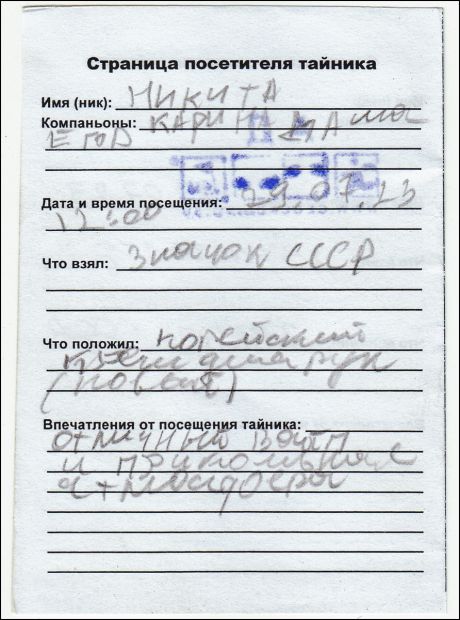 Страница посетителя тайника
Имя (ник): НИКИТА
Компаньоны: КАРИНА МАма
ЕГОР
Дата и время посещения: 29.07.13
12:00
Что взял: Значок СССР
Что положил: корейский
крем для рук
(новый)
Впечатления от посещения тайника:
отличный вайп
и прикольная
атмосфера